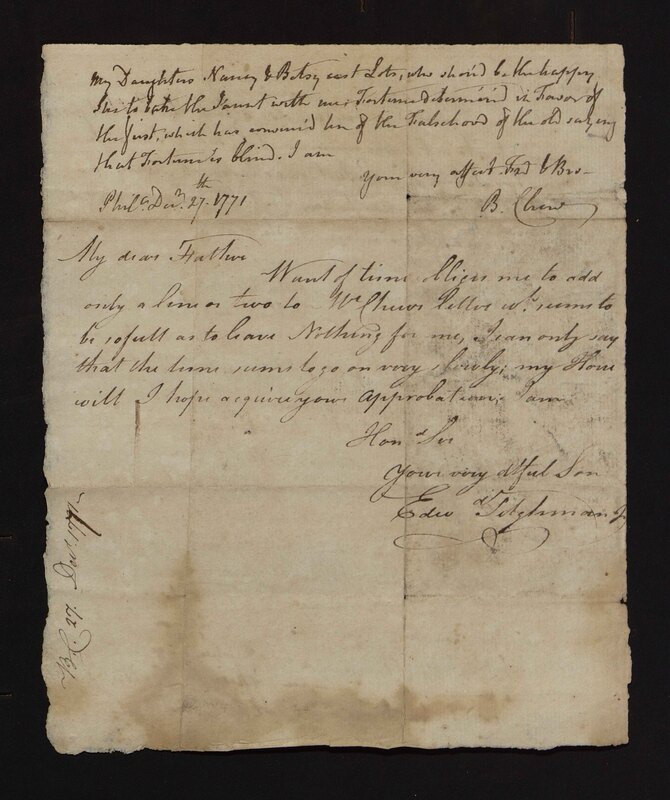 My Daughters Nancy & Betsy cast Lots, who shou'd be the happy
She to take the Jaunt with me; Fortune determin'd in Favor of
the first, which has convinc'd her of the Falsehood of the old saying
that Fortune is blind. I am
Your very affect. Frd & Bro-
Phila. Decr. 27th. 1771
B. Chew
My dear Father
Want of time obliges me to add
only a line or two to Mr. Chews letter wh. seems to
be so full as to leave Nothing for me, I can only say
that the time seems to go on very slowly; my Horse
will I hope acquire your approbation; I am
Hond Sir
Your very dtiful Son
Edwd Tilghman Jr
BC 27 Decr. 1771